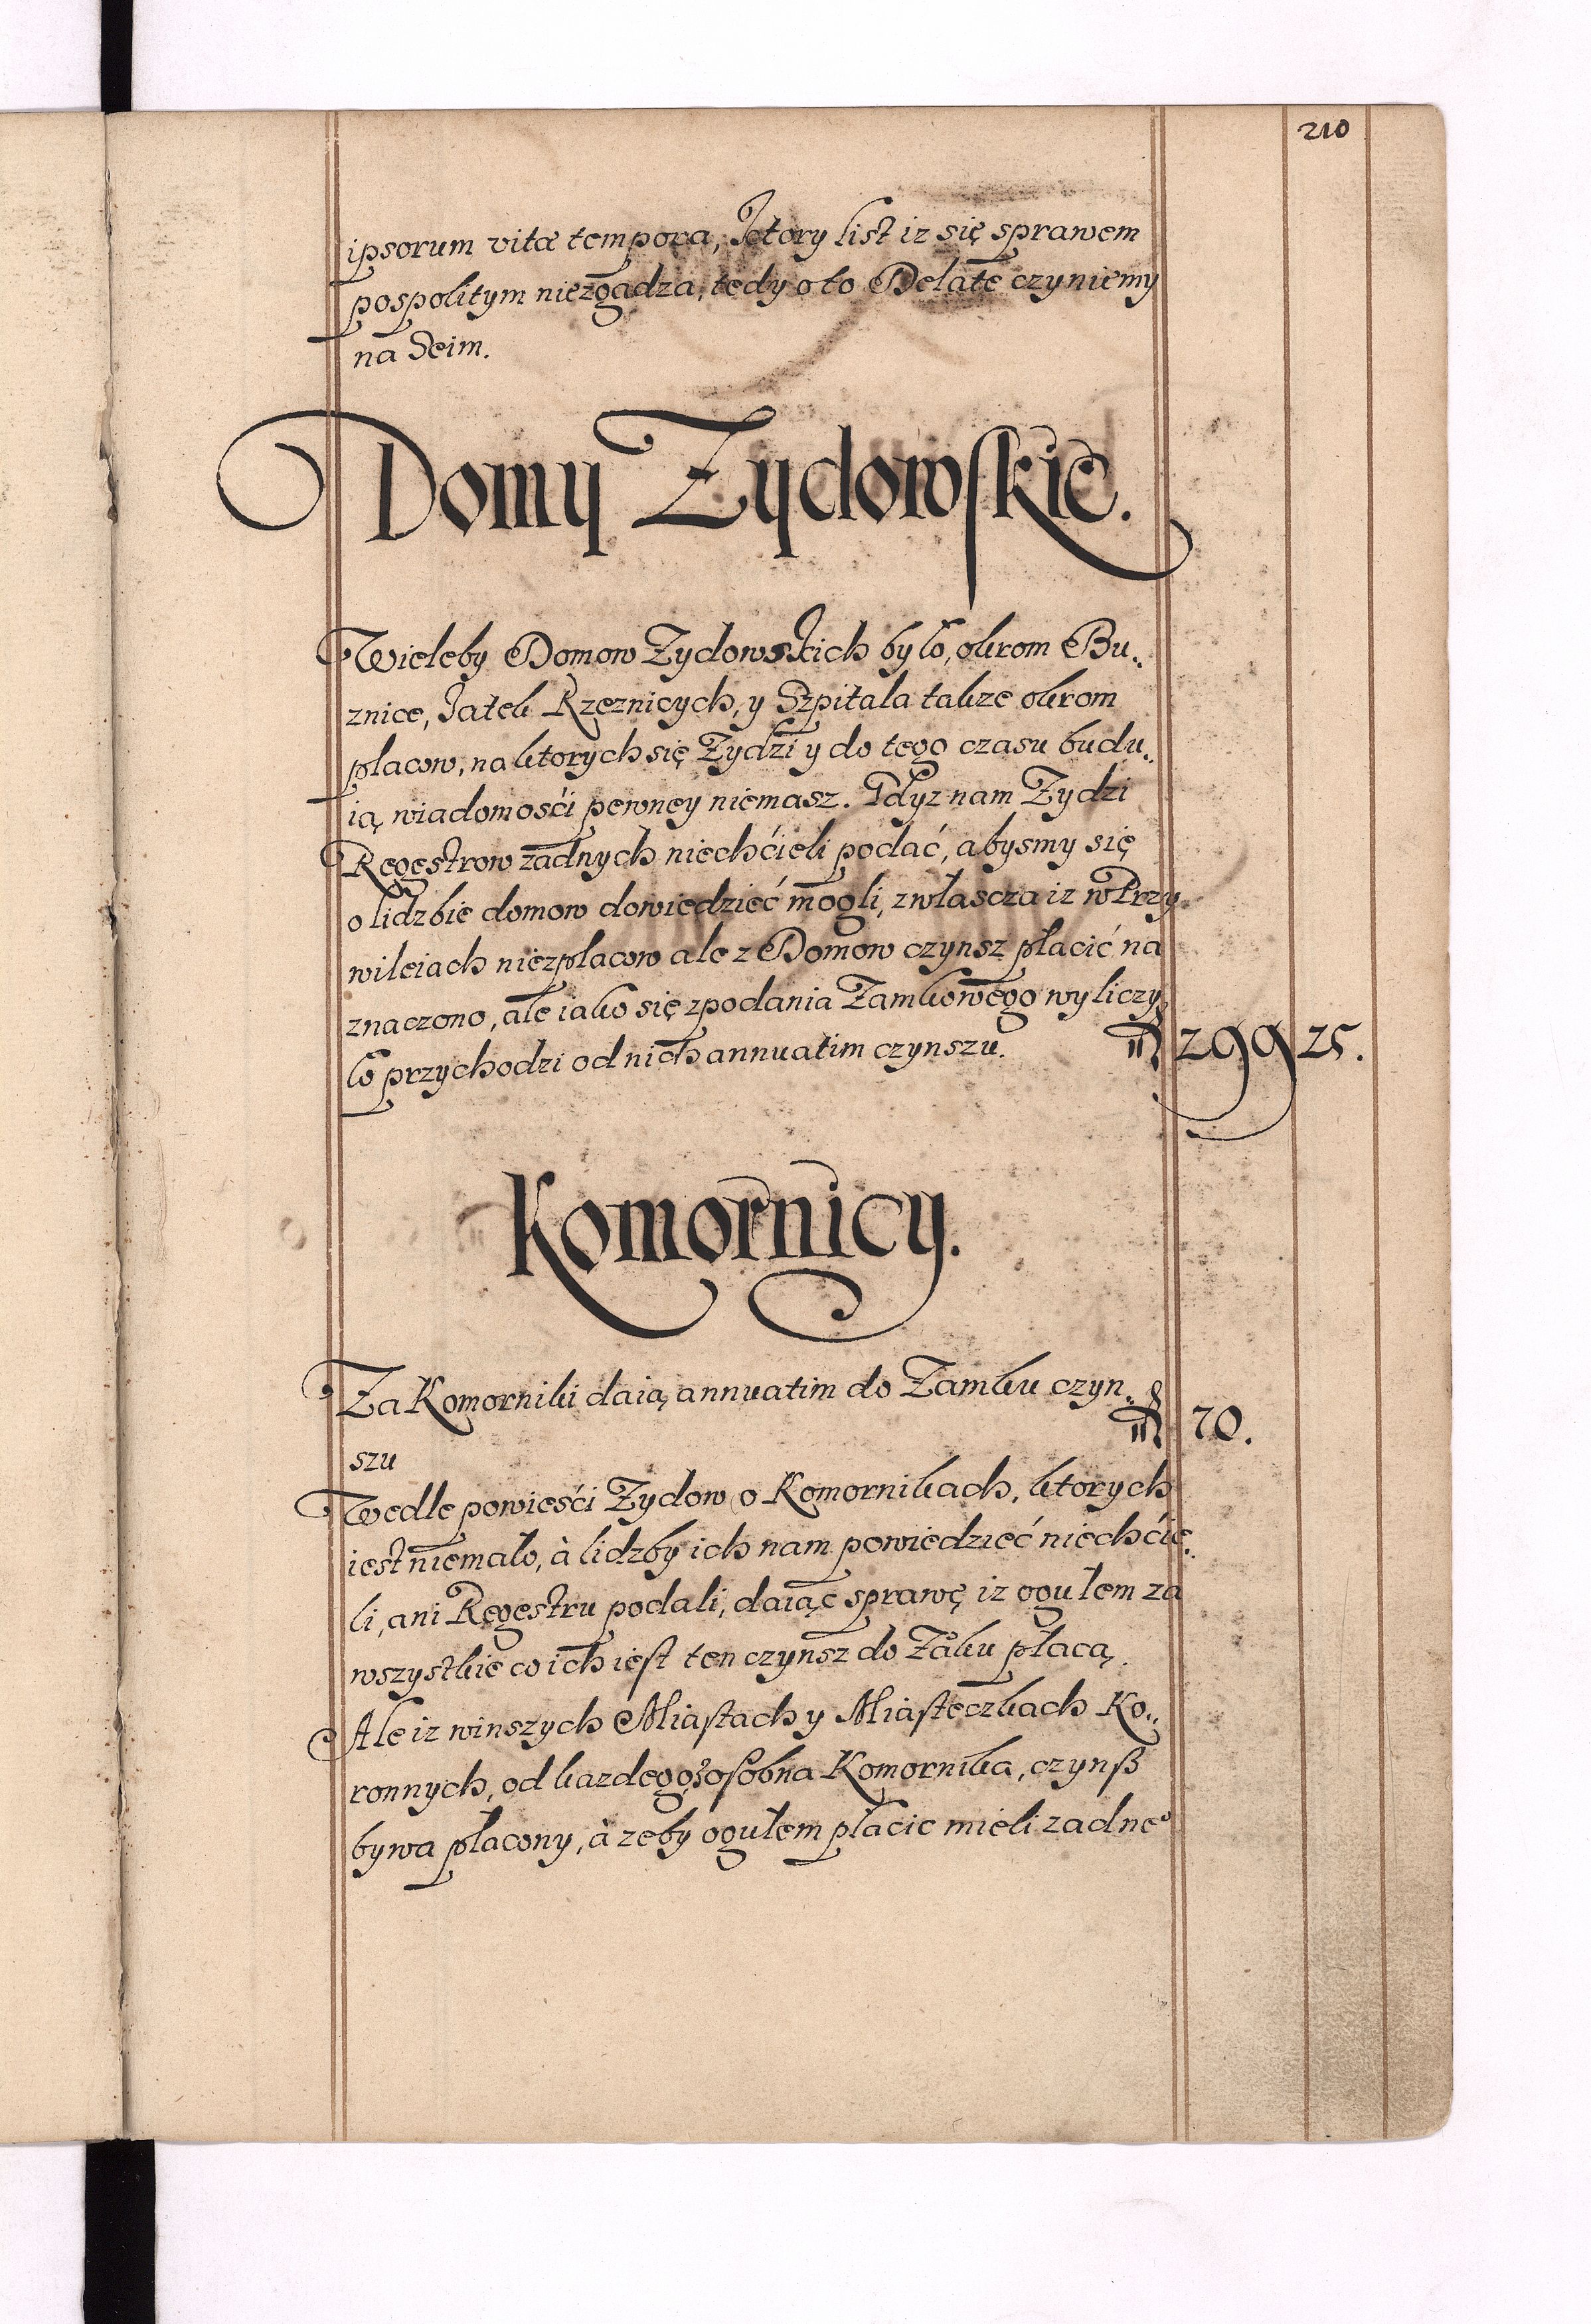 210
ipsorum vitæ tempora, ktory list iz się sprawem
pospolitym niezgadza, tedy o to Delate czyniemy
na Seim.
Domy Zydowskie.
Wieleby Domow Zydowskich było, okrom Bu„
znice, Jatek Rzeznicych, y Szpitala takze okrom
placow, na ktorych się Zydzi y do tego czasu budu„
ią, wiadomośći pewney niemasz. Gdyz nam Zydzi
Regestrow zadnych niechćieli podać, abysmy się
o lidzbie domow dowiedzieć mogli, zwłascza iz w Przy
wileiach niezplacow ale z Domow czynsz płacić na
znaczono, ale iako się zpodania Zamkowego wyliczy
ło przychodzi od nich annuatim czynszu. 299 25.
Komornicy.
Za Komorniki daią annuatim do Zamku czyn„ 70.
szu
Wedle powieśći Zydow o Komornikach, ktorych
iest niemało, à lidzby ich nam powiedzieć niechćie„
li, ani Regestru podali, daiąc sprawę iz ogułem za
wszystkie co ich iest ten czynsz do Zaku płacą.
Ale iz winszych Miastach y Miasteczkach Ko„
ronnych, od kazdego zosobna Komornika, czynß
bywa płacony, à zeby ogułem płacic mieli zadne°